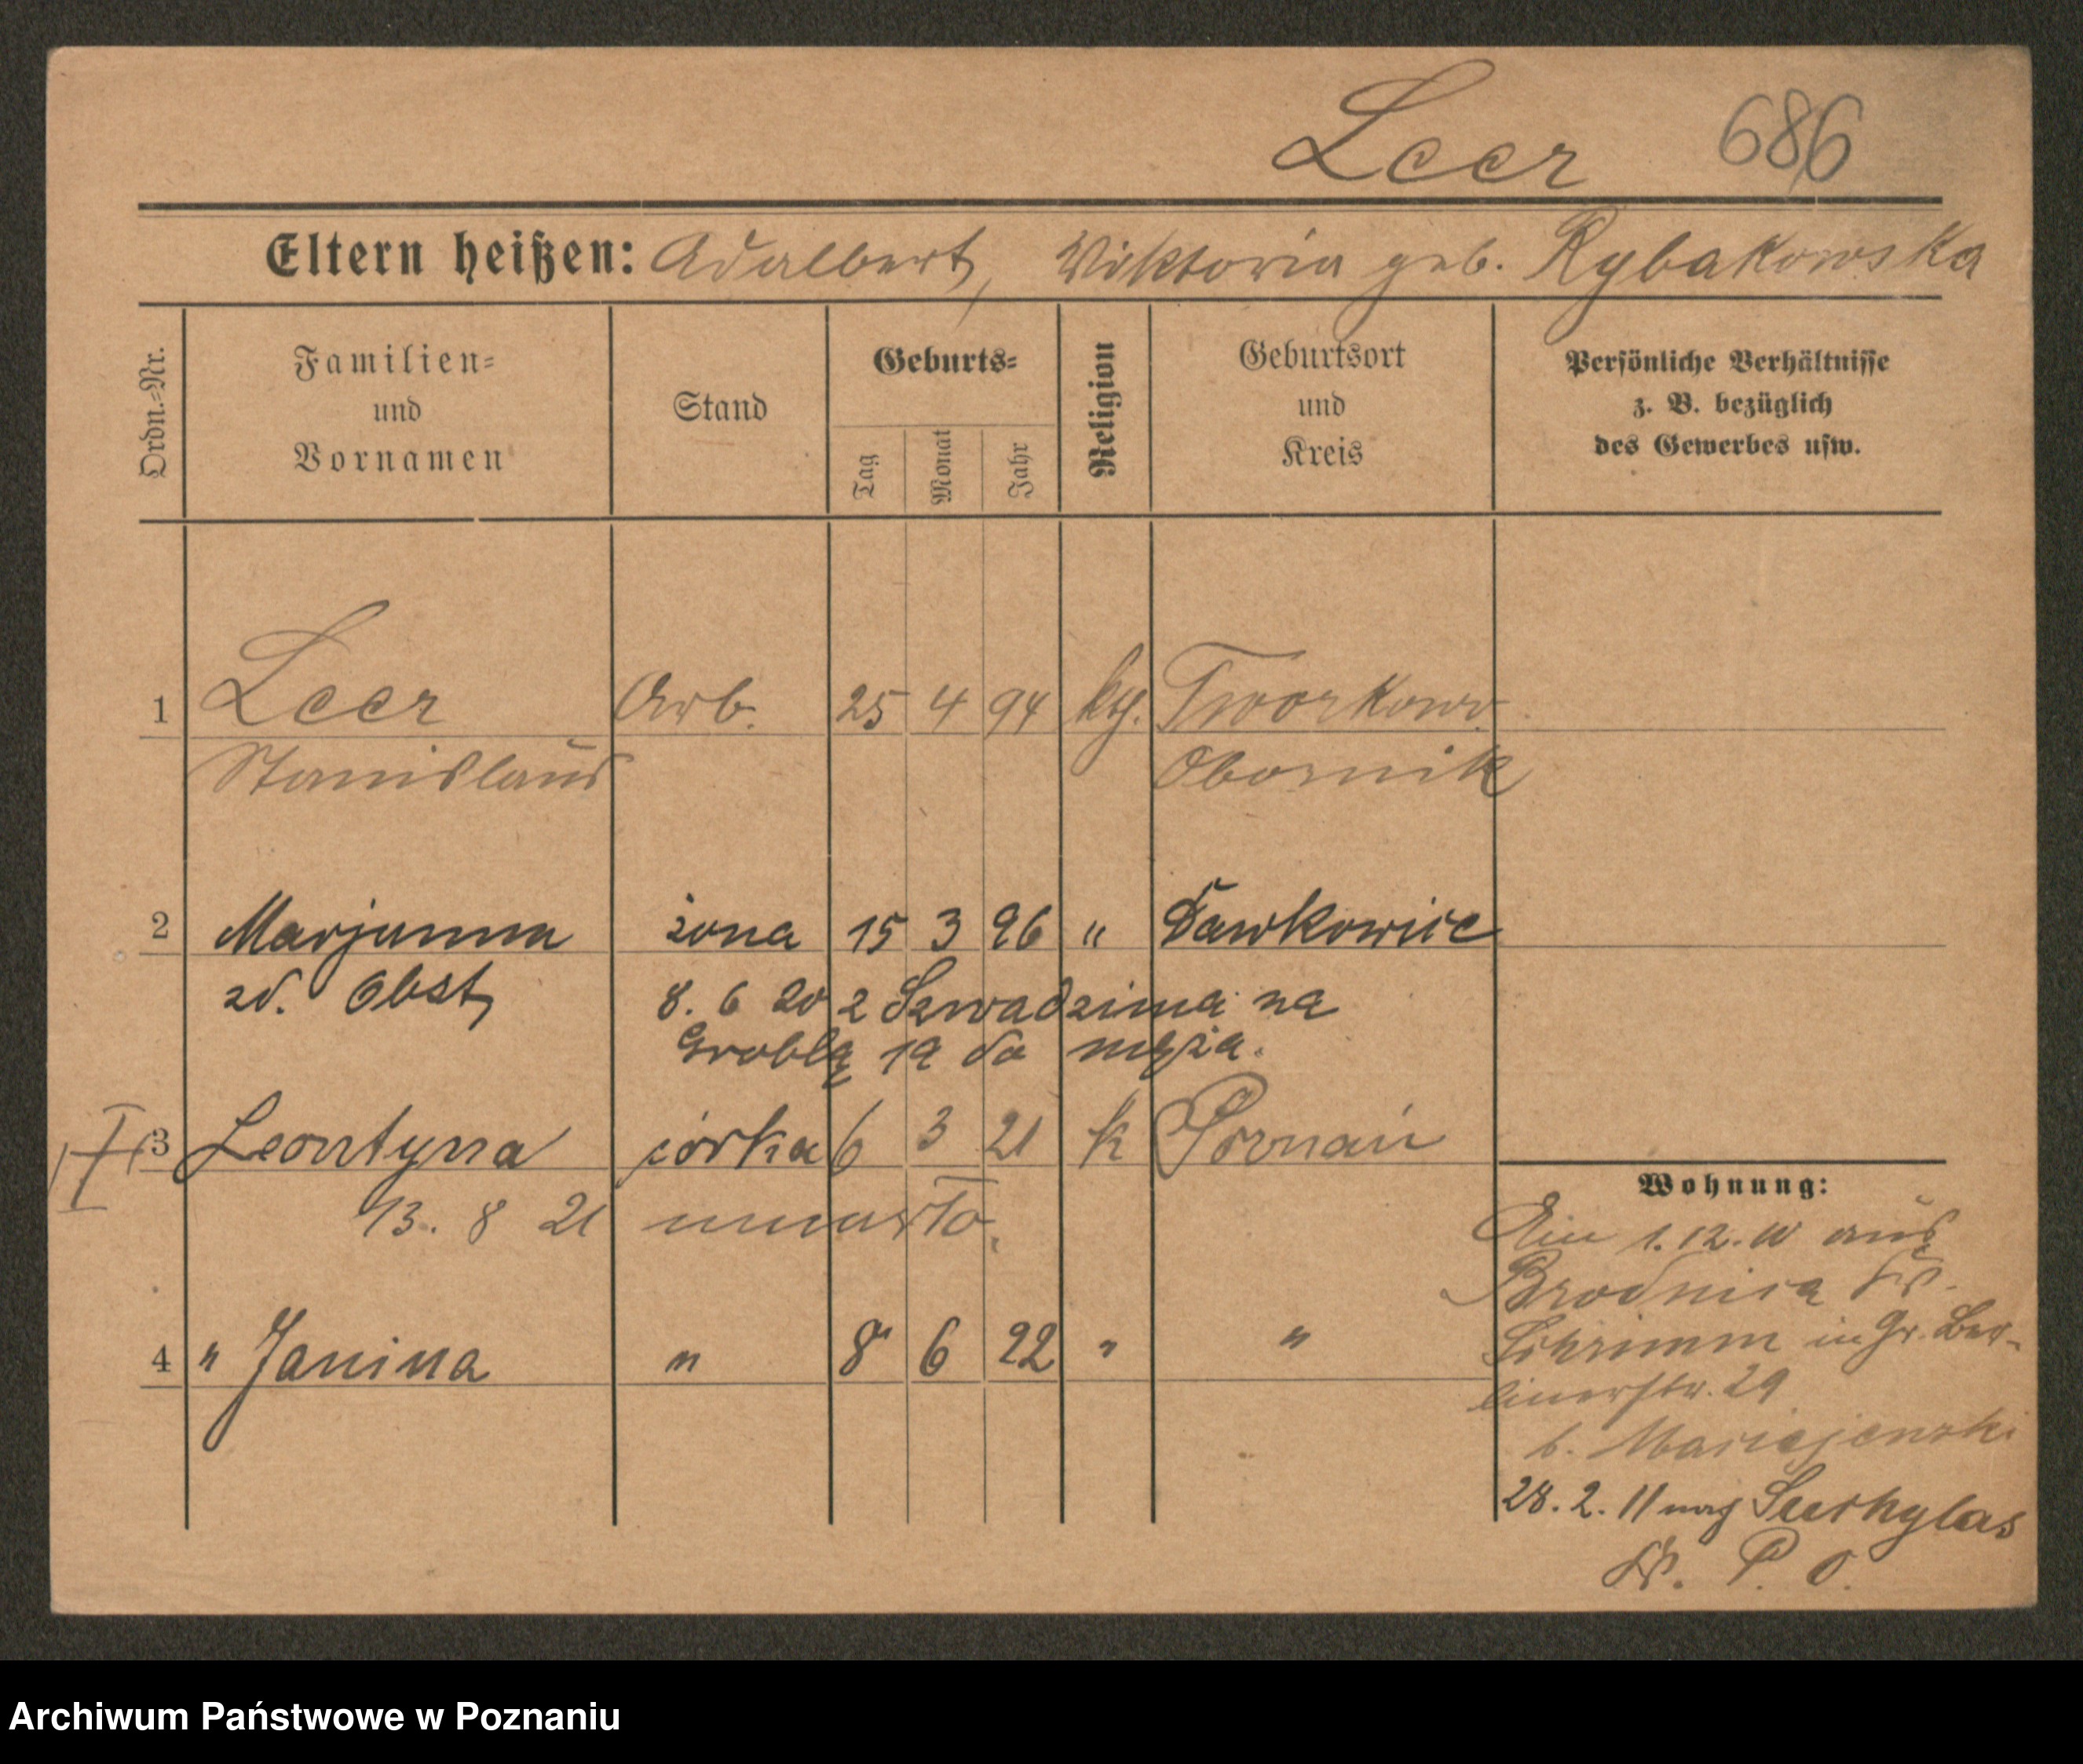 Leer 686
Eltern heißen: Adalbert, Viktoria geb. Rybakowska
Ordn.-Nr.
Familien-
und
Vornamen
Stand
Geburts-
Tag
Monat
Jahr
Religion
Geburtsort
und
Kreis
Persönliche Verhältnisse
z. B. bezüglich
des Gewerbes usw.
1 Leer Arb. 25 4 94 kg. Tworkowo
Stanislaus Obornik
2 Marjanna żona 15 3 96 "
zd. Obst, 8. 6 20 z Szwadzima na
Groblę 19 do męża.
3 Leontyna córka 6 3 21 k Poznań
13. 8 21 umarła.
4 " Janina " 8 6 22 " "
Wohnung:
1.12.10 aus
Brodnica Kr.
Schrimm in Gr. Ber-
linerstr. 29
b.
28. 2. 11 nach Suchylas
Kr. P. O.
Archiwum Państwowe w Poznaniu